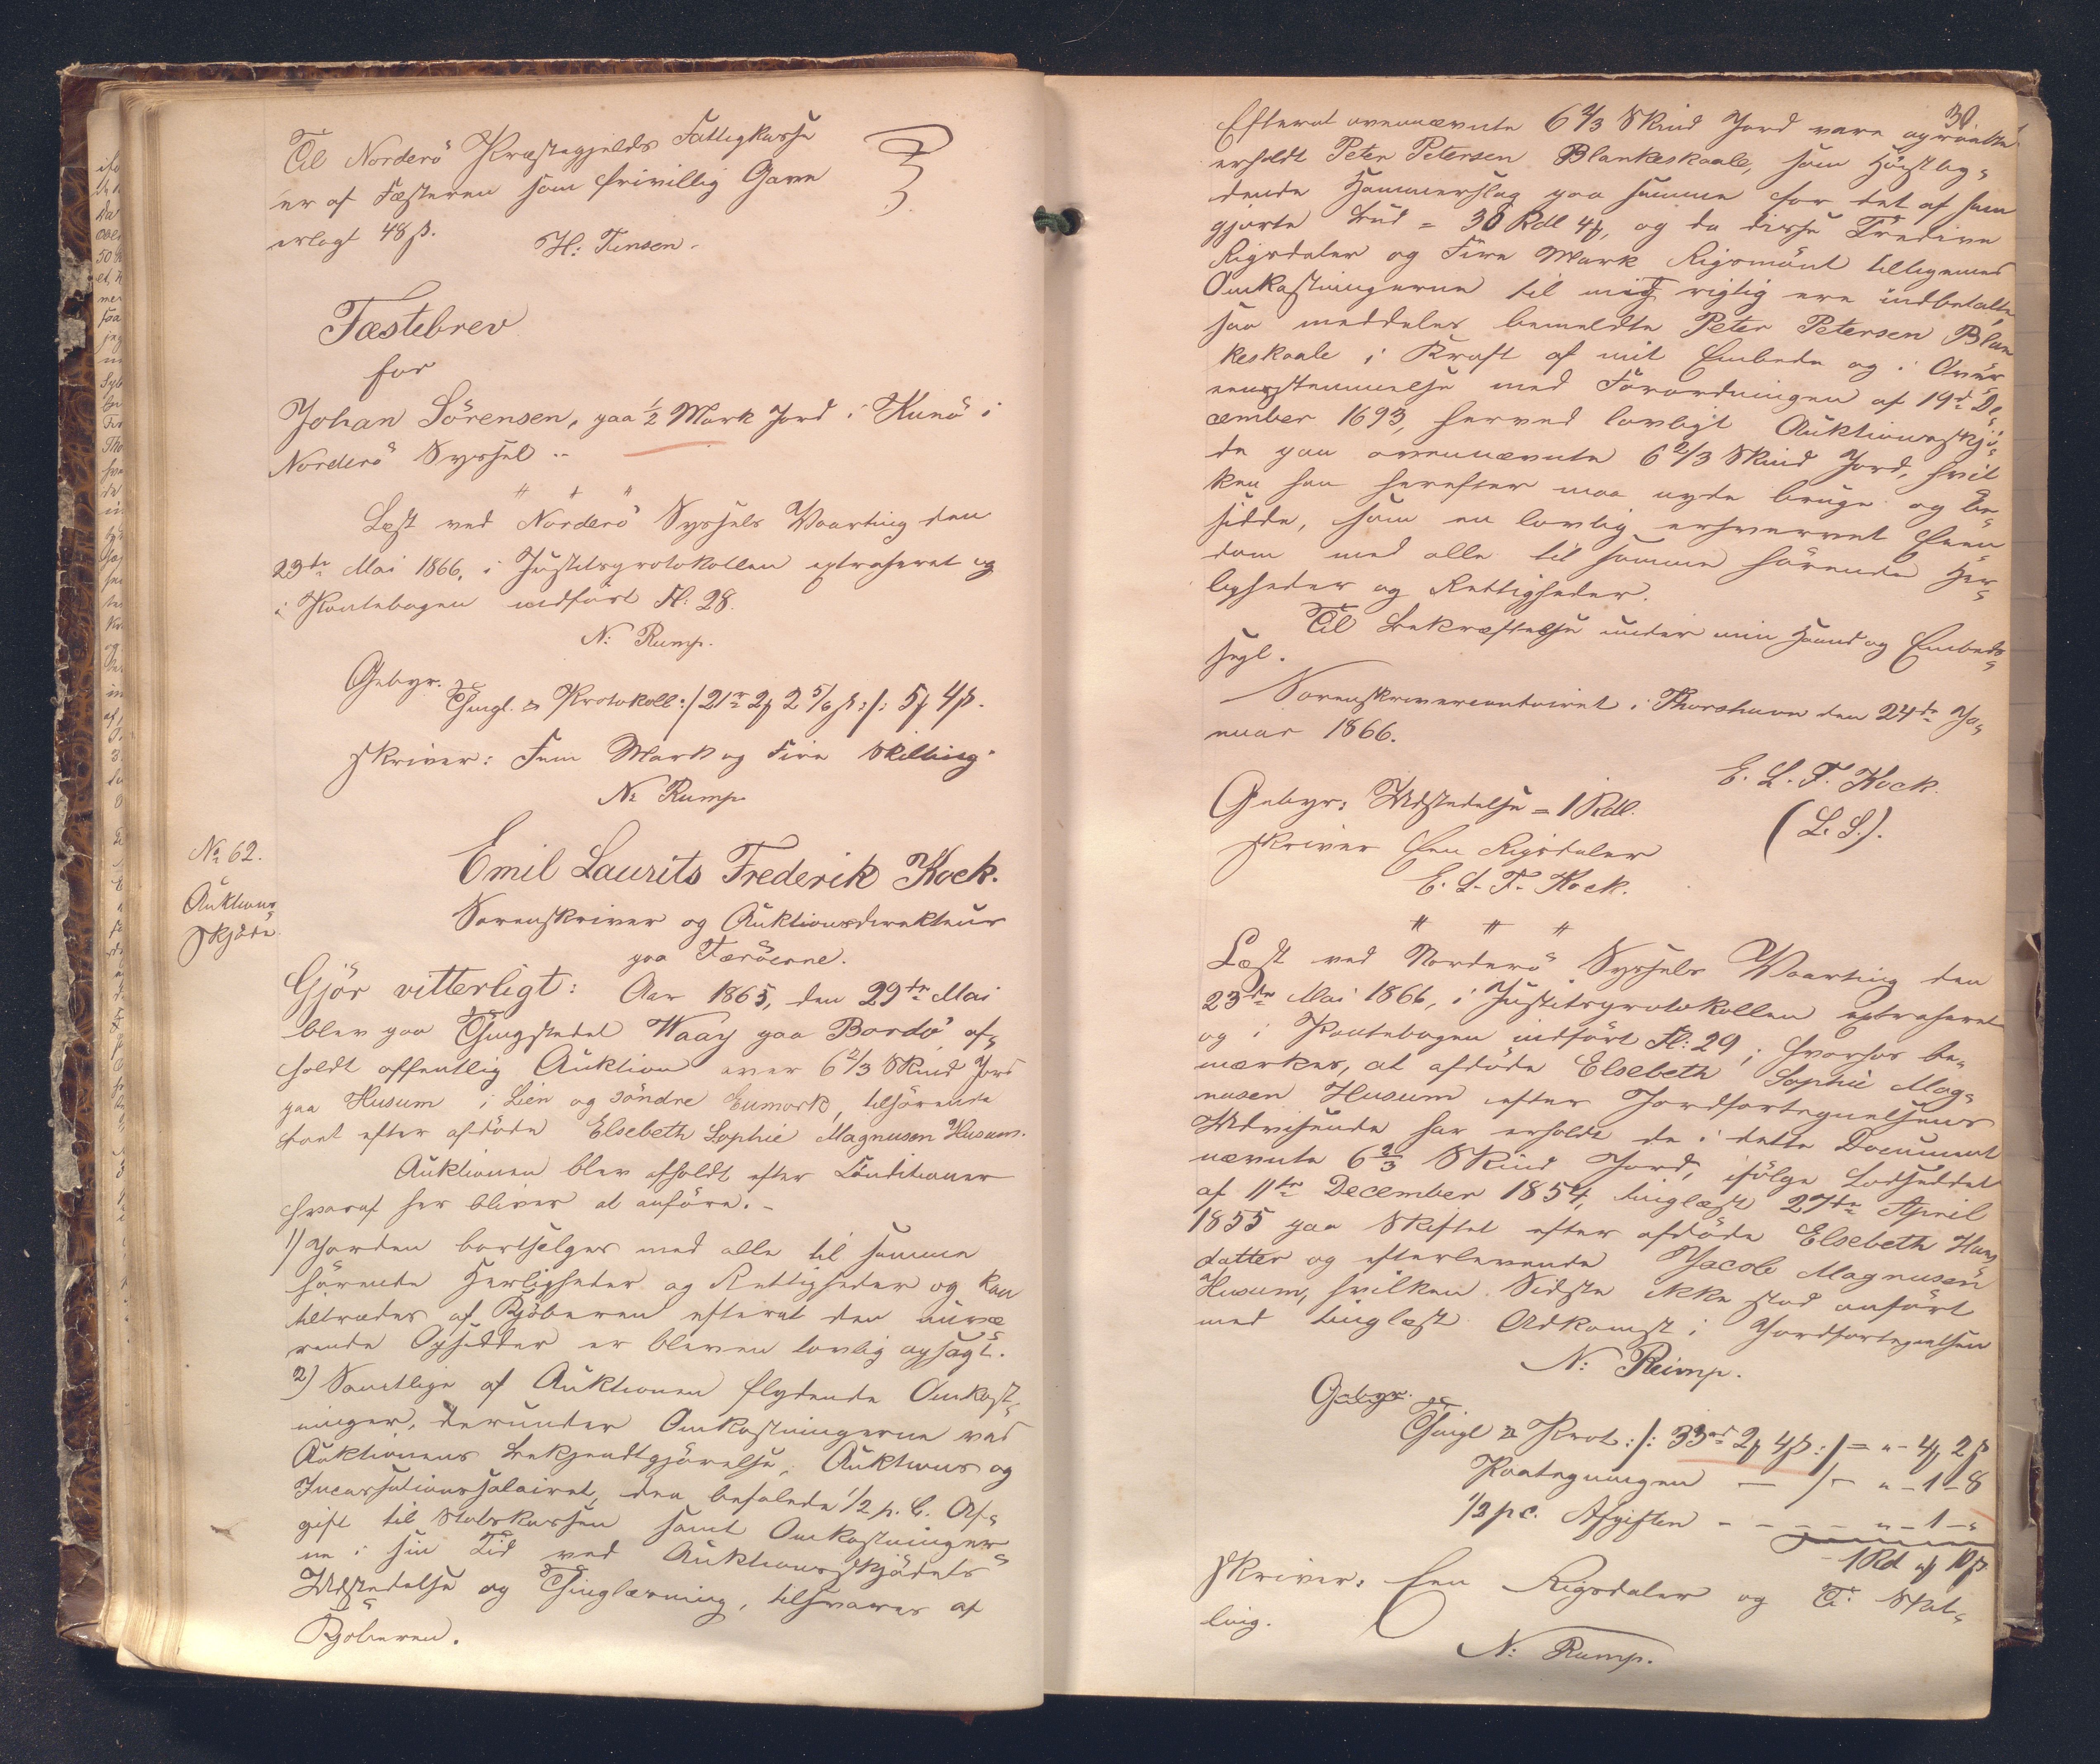 Til Norderö Præstegjelds Fattigkasse
er af Fæsteren som frivillig Gave
erlagt 48 ß.
H: Tinsen.
Fæstebrev
for
Johan Sörensen, paa ½ Mark Jord i Kunö i
Norderö Syssel ..
" " "
Læst ved Norderö Syssels Vaarting den
23de Mai 1866, i Justitsprotokollen extraheret og
i Pantebogen indfört Fl: 28.
N: Rump.
Gebyr.
Thingl. & Protokoll :/ 21 r 2 ꝑ 2 5/6 ß :/: 5 ꝑ 4 ß.
skriver: Fem Mark og Fire Skilling.
N: Rump.
No 62.
Auktions
skjöde.
Emil Laurits Frederik Kock.
Sorenskriver og Auktionsdirekteur
paa Færöerne.
Gjör vitterligt: Aar 1865, den 29de Mai
blev paa Thingstedet Waag paa Bordö af-
holdt offentlig Auktion over 6 2/3 Skind Jord
paa Husum i Lien og söndre Eumark, tilhörende
boet efter afdöde Elsebeth Sophie Magnusen Husum.
Auktionen blev afholdt efter Conditioner
hvoraf her bliver at anföre. -
1) Jorden bortsælges med alle til samme
hörende Herligheder og Rettigheder og kan
tiltrædes af Kjöberen efterat den nuvæ
rende Opsidder er bleven lovlig opsagt.
2) Samtlige af Auktionen flydende Omkost-
ninger, derunder Omkostningerne ved
Auktionens Bekjendtgjörelse, Auktions og
Incassationssalairet, den befalede 1/2 p. C. Af-
gift til Statskassen samt Omkostninger
ne i sin Tid ved Auktionsskjödets
Udstedelse og Thinglæsning, tilsvares af
Kjöberen.
30.
Efterat ovennævnte 6 2/3 Skind Jord vare opraabte
erholdt Peter Petersen Blankeskaale, som Höistby-
dende Hammerslag paa samme for det af ham
gjorte Bud = 30 Rdl 4 ꝑ, og da disse Tredive
Rigsdaler og Fire Mark Rigsmönt tilligemed
Omkostningerne til mig rigtig ere indbetalte
saa meddeles bemeldte Peter Petersen Blan
keskaale i Kraft af mit Embede og i Over
eensstemmelse med Forordningen af 19de De-
cember 1693, herved lovligt Auktionsskjö-
de paa ovennævnte 6 2/3 Skind Jord, hvil
ken han herefter maa nyde bruge og be-
sidde, som en lovlig erhvervet Eien
dom med alle til samme hörende Her-
ligheder og Rettigheder.
Til Bekræftelse under min Haand og Embeds-
segl.
Sorenskrivercontoiret i Thorshavn den 24de Ja-
nuar 1866.
E. L. F. Kock.
(L. S.).
Gebyr: Udstedelse = 1 Rdl.
skriver Een Rigsdaler
E. L. F. Kock.
" " "
Læst ved Norderö Syssels Vaarting den
23de Mai 1866, i Justitsprotokollen extraheret
og i Pantebogen indfört Fl: 29; hvorhos be-
mærkes, at afdöde Elsebeth Sophie Mag-
nusen Husum efter Jordfortegnelsens
Udvisende har erholdt de i dette Document
nævnte 6 2/3 Skind Jord, ifölge Lodseddel
af 11te December 1854, tinglæst 27de April
1855 paa Skiftet efter afdöde Elsebeth Hans-
datter og efterlevende Jacob Magnusen
af Husum, hvilken Sidste ikke stod anfört
med tinglæst Adkomst i Jordfortegnelsen
N: Rump.
Gebyr.
Thingl & Prot: /: 33 rd 2 ꝑ 4 ß :/ = " - 4 ꝑ 2 ß
Paategningen - /- " - 1 - 8
1/2 p c. Afgiften - - - - " - 1 - "
1 Rd " ꝑ 10 ß
skriver: Een Rigsdaler og Ti Skil-
ling.
N: Rump.